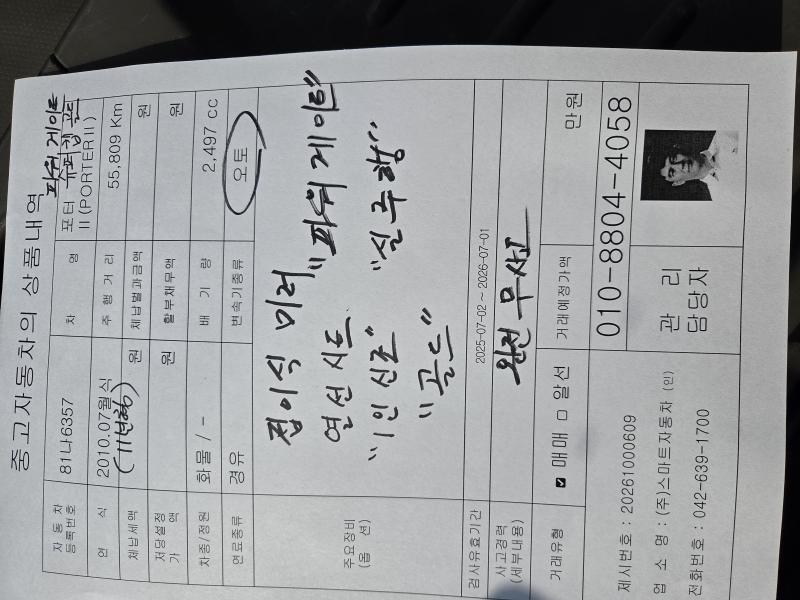 중고자동차의 상품내역
자동차 등록번호 81나6357 차 명 포터 슈퍼캡 골드 파워 게이트 II (PORTER II)
연 식 2010.07월식 (11년형) 주 행 거 리 55,809 Km
체납세액 원 체납범과금액 원
저당설정 가 액 원 할부채무액 원
차종/정원 화물 / - 배 기 량 2,497 cc
연료종류 경유 변속기종류 오토
주요장비 (옵 션)
접이식 미러
열선 시트 "파워 게이트"
"1인 신조" "실 주행"
"골드"
검사유효기간 2025-07-02 ~ 2026-07-01
사고경력 (세부내용) 완전 무사고
거래유형 ☑ 매매 □ 알선 거래예정가액 만원
제시번호 : 20261000609
업 소 명 : (주)스마트자동차 (인)
전화번호 : 042-639-1700
관 리 담당자
010-8804-4058